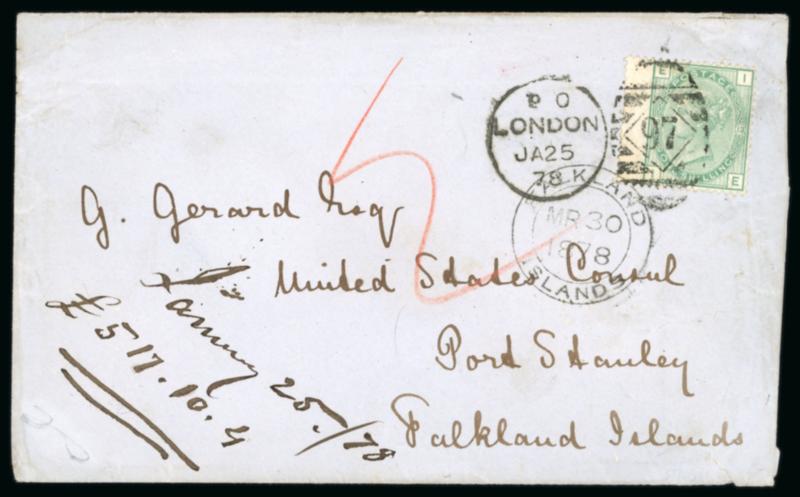 P O
LONDON
JA25
78
97
E I
POSTAGE
E
FALKLAND
MR 30
1878
ISLANDS
G. Gerard Esq
United States Consul
Port Stanley
Falkland Islands
January 25/78
£517.10.4